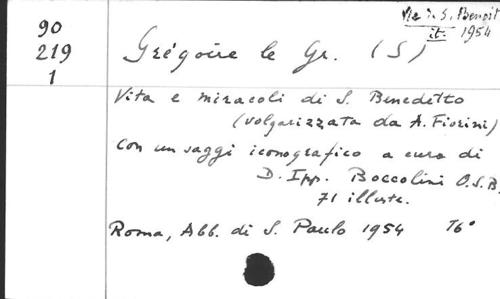 Vie de S. Benoit
it. 1954
90
219
1
Grégoire le Gr. (S)
Vita e miracoli di S. Benedetto
(volgarizzata da A. Fiorini)
con un saggi iconografico a cura di
D. Ipp. Boccolini O.S.B.
71 illustr.
Roma, Abb. di S. Paulo 1954 16°